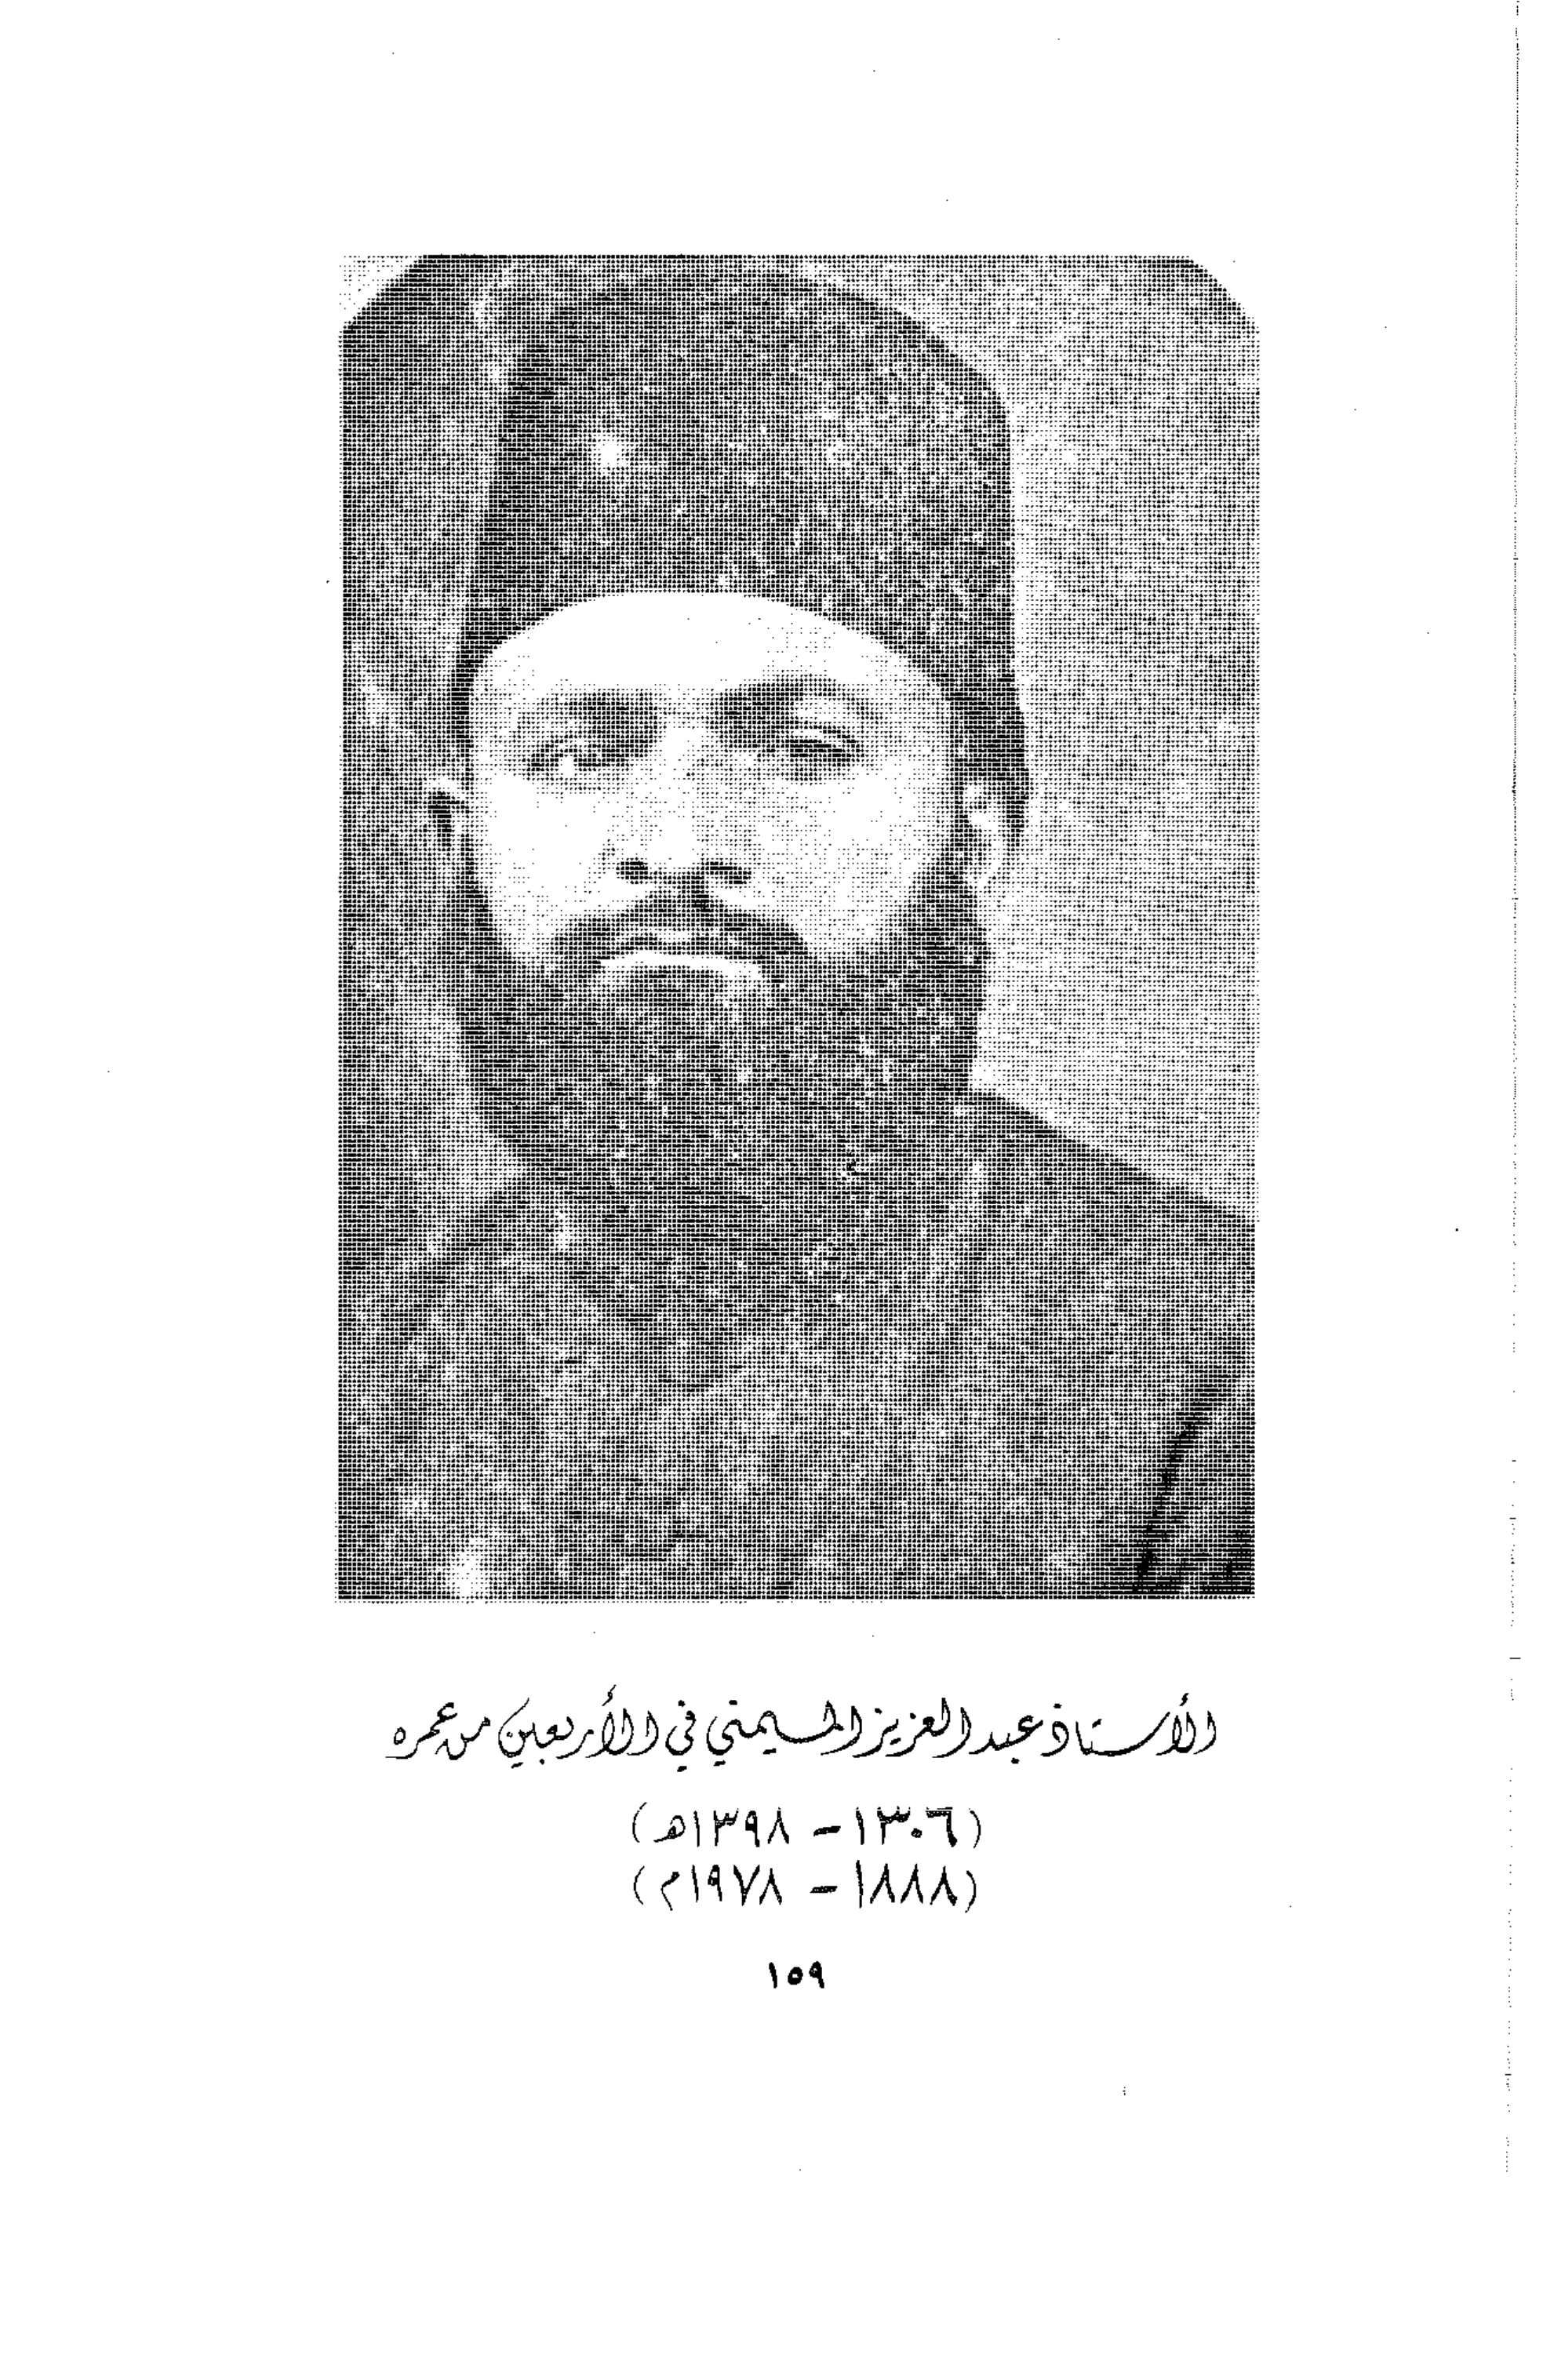 الأستاذ عبد العزيز الميمني في الأربعين من عمره
(١٣٠٦ - ١٣٩٨هـ)
(١٨٨٨ - ١٩٧٨م)
١٥٩